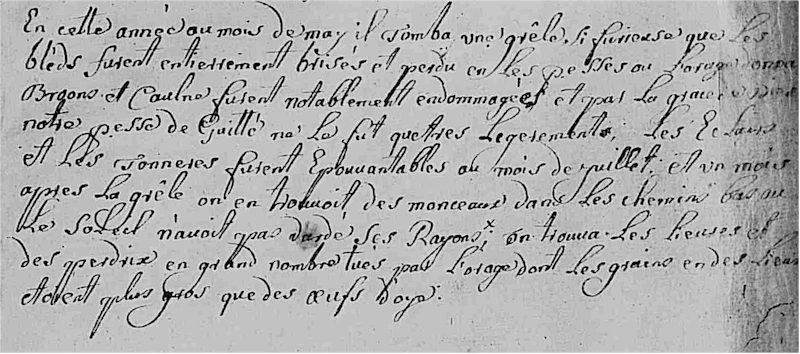 En cette année au mois de may il tomba une grêle si furieuse que les
bléds furent entierrement brisés et perdu en les pesses ou l'orage donna
Broons et Caulne furent notablement endommagées et par la grace
notre pesse de Guitté ne le fut que tres legerement, les Eclairs
et les tonneres furent Epouvantables au mois de juillet, et un mois
apres la grêle on en trouvoit des monceaux dans les chemins bas ou
le soleil n'avoit pas dardé ses Rayons x; on trouva les lieures et
des perdrix en grand nombre tues par l'orage dont les grains en des lieux
etoient plus gros que des œufs d'oye.